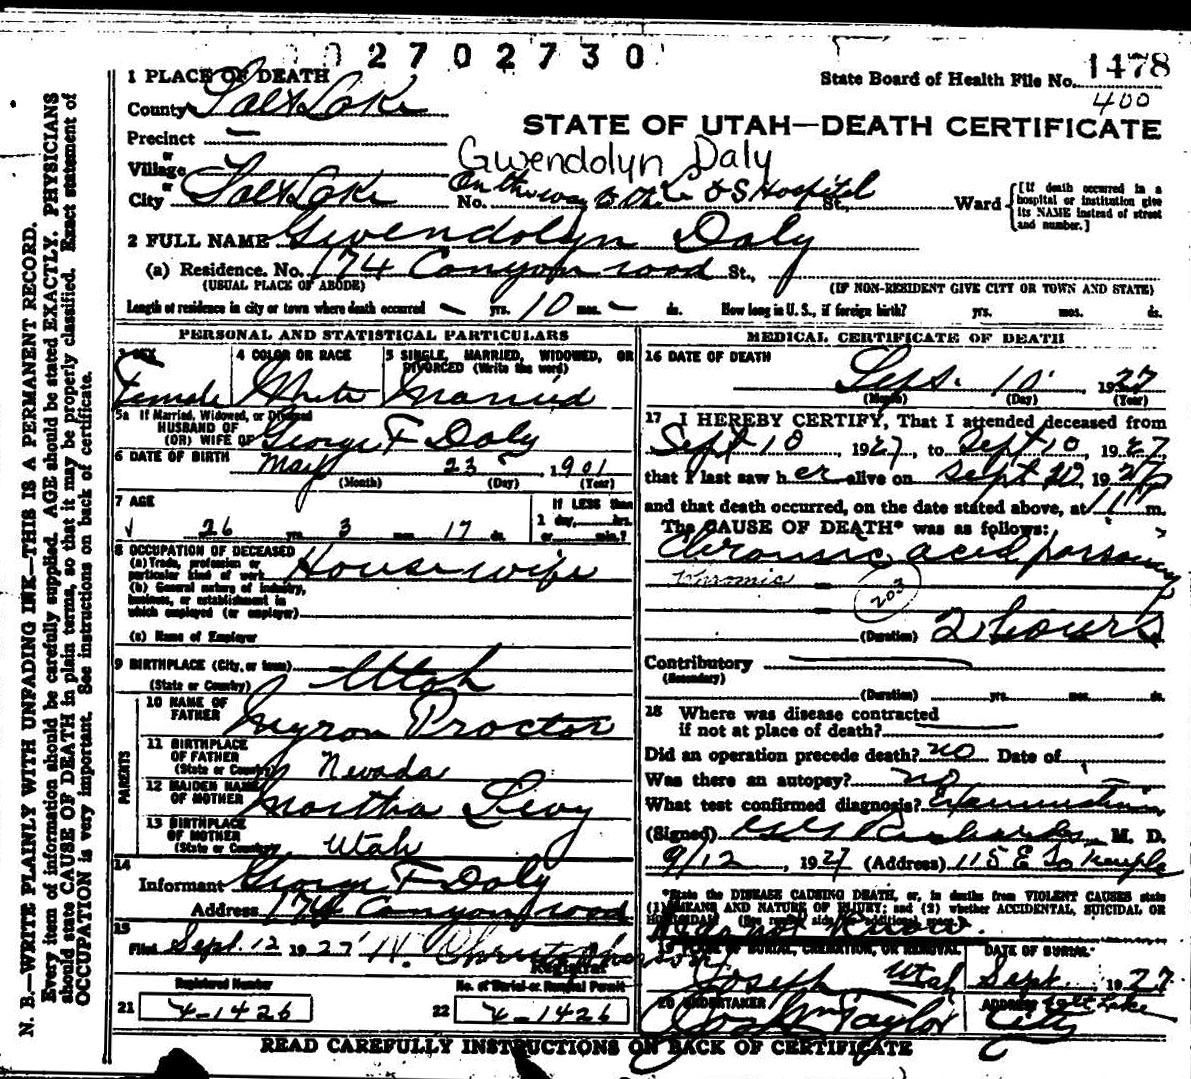 02702730
1 PLACE OF DEATH
State Board of Health File No. 1478
400
County Salt Lake
STATE OF UTAH—DEATH CERTIFICATE
Precinct —
Gwendolyn Daly
or
Village
or
City Salt Lake No. On the way to the L D S Hospital St., Ward
[If death occurred in a hospital or institution give its NAME instead of street and number.]
2 FULL NAME Gwendolyn Daly
(a) Residence. No. 174 Canyon road St.,
(USUAL PLACE OF ABODE) (IF NON-RESIDENT GIVE CITY OR TOWN AND STATE)
Length of residence in city or town where death occurred — yrs. 10 mos. — ds. How long in U. S., if foreign birth? yrs. mos. ds.
PERSONAL AND STATISTICAL PARTICULARS
3 SEX 4 COLOR OR RACE 5 SINGLE, MARRIED, WIDOWED, OR
DIVORCED (Write the word)
Female White Married
5a If Married, Widowed, or Divorced
HUSBAND OF
(OR) WIFE OF George F Daly
6 DATE OF BIRTH May 23 1901
(Month) (Day) (Year)
7 AGE If LESS than
1 day, hrs.
26 yrs. 3 mos. 17 ds. or min.?
8 OCCUPATION OF DECEASED
(a) Trade, profession or
particular kind of work Housewife
(b) General nature of industry,
business, or establishment in
which employed (or employer)
(c) Name of Employer
9 BIRTHPLACE (City, or town)
(State or Country) Utah
PARENTS
10 NAME OF
FATHER Myron Proctor
11 BIRTHPLACE
OF FATHER
(State or Country) Nevada
12 MAIDEN NAME
OF MOTHER Martha Levy
13 BIRTHPLACE
OF MOTHER
(State or Country) Utah
14
Informant George F Daly
Address 174 Canyon road
15
Filed Sept. 12 1927 H.
Registrar
Registered Number No. of Burial or Removal Permit
21 X-1426 22 X-1426
MEDICAL CERTIFICATE OF DEATH
16 DATE OF DEATH
Sept. 10 1927
(Month) (Day) (Year)
17 I HEREBY CERTIFY, That I attended deceased from
Sept 10, 1927, to Sept 10, 1927
that I last saw her alive on Sept 10, 1927
and that death occurred, on the date stated above, at 11 m.
The CAUSE OF DEATH* was as follows:
Chromic acid
Chromic 203
(Duration) 2 hours
Contributory
(Secondary)
(Duration) yrs. mos. ds.
18 Where was disease contracted
if not at place of death?
Did an operation precede death? no Date of
Was there an autopsy? no
What test confirmed diagnosis? Examination
(Signed) Richards M. D.
9/12, 1927 (Address) 115 E So Temple
*State the DISEASE CAUSING DEATH, or, in deaths from VIOLENT CAUSES state
(1) MEANS AND NATURE OF INJURY; and (2) whether ACCIDENTAL, SUICIDAL OR
HOMICIDAL. (See reverse side
know.
19 PLACE OF BURIAL, CREMATION, OR REMOVAL DATE OF BURIAL
Joseph Utah Sept. 1927
20 UNDERTAKER ADDRESS Salt Lake
Jos Wm Taylor City
READ CAREFULLY INSTRUCTIONS ON BACK OF CERTIFICATE
N. B.—WRITE PLAINLY WITH UNFADING INK—THIS IS A PERMANENT RECORD.
Every item of information should be carefully supplied. AGE should be stated EXACTLY. PHYSICIANS
should state CAUSE OF DEATH in plain terms, so that it may be properly classified. Exact statement of
OCCUPATION is very important. See instructions on back of certificate.